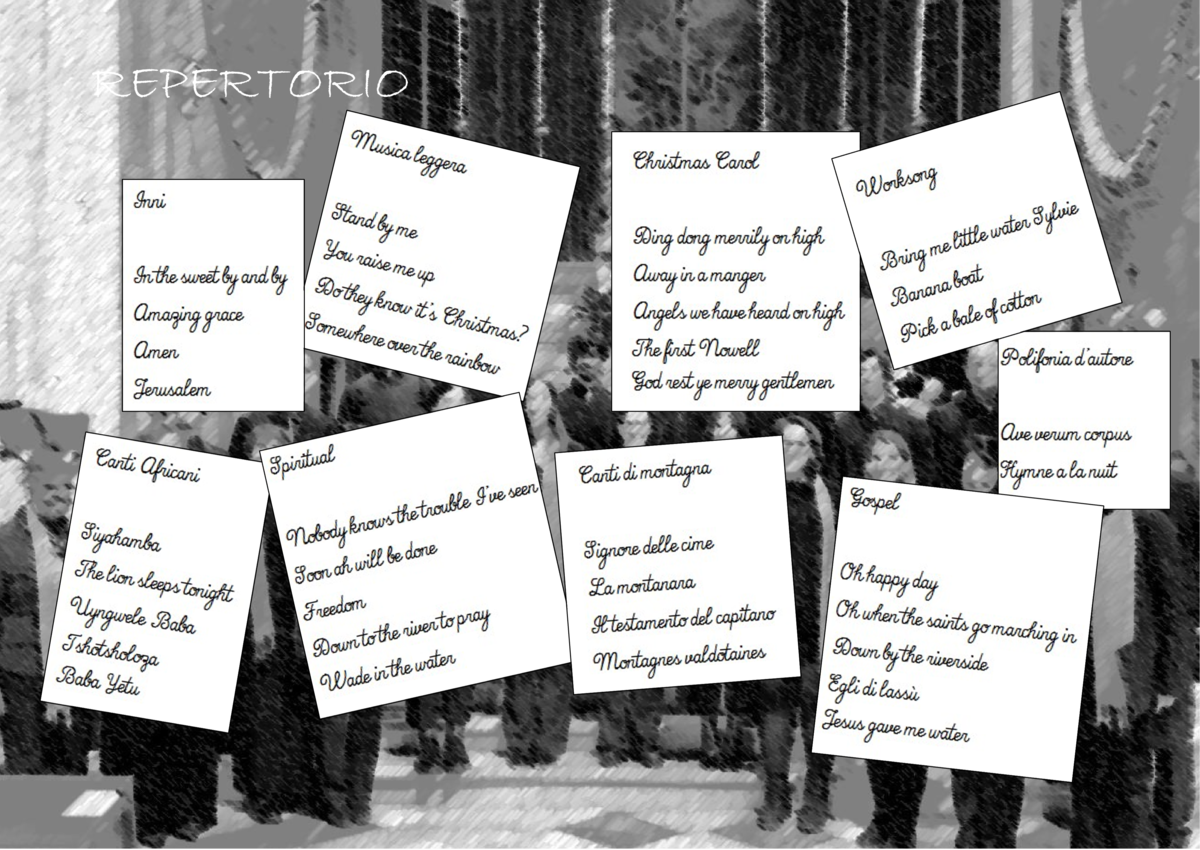 REPERTORIO
Inni
In the sweet by and by
Amazing grace
Amen
Jerusalem
Musica leggera
Stand by me
You raise me up
Do they know it's Christmas?
Somewhere over the rainbow
Christmas Carol
Ding dong merrily on high
Away in a manger
Angels we have heard on high
The first Nowell
God rest ye merry gentlemen
Worksong
Bring me little water Sylvie
Banana boat
Pick a bale of cotton
Polifonia d'autore
Ave verum corpus
Hymne a la nuit
Canti Africani
Siyahamba
The lion sleeps tonight
Uyngwele Baba
Tshotsholoza
Baba Yetu
Spiritual
Nobody knows the trouble I've seen
Soon ah will be done
Freedom
Down to the river to pray
Wade in the water
Canti di montagna
Signore delle cime
La montanara
Il testamento del capitano
Montagnes valdotaines
Gospel
Oh happy day
Oh when the saints go marching in
Down by the riverside
Egli di lassù
Jesus gave me water